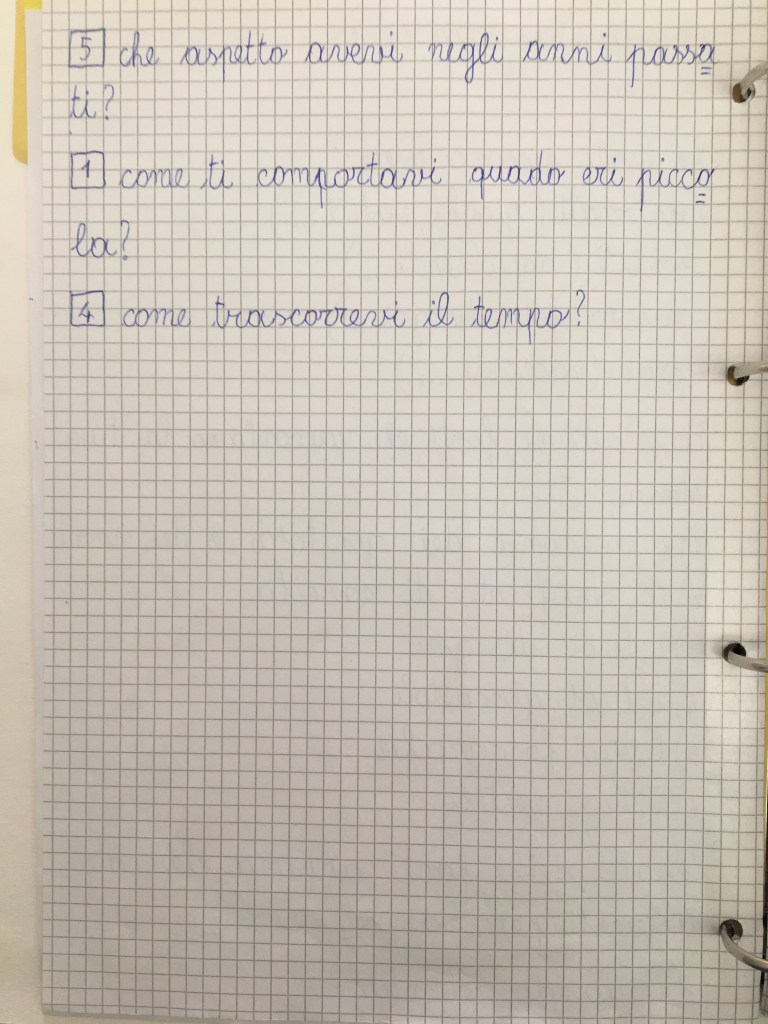 5 che aspetto avevi negli anni passa
ti?
1 come ti comportavi quado eri picco
la?
4 come trascorrevi il tempo?